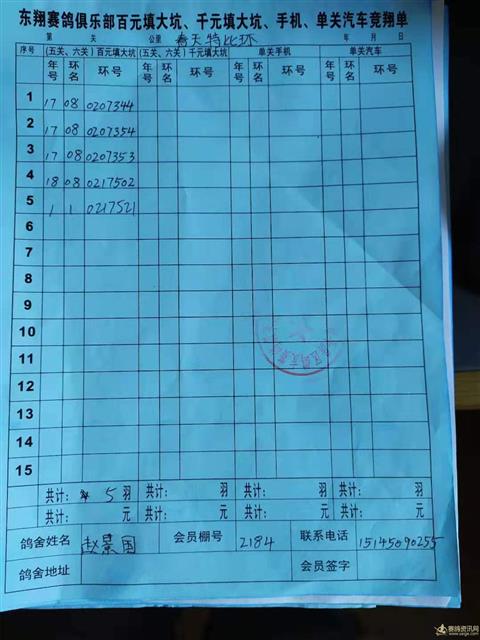 东翔赛鸽俱乐部百元填大坑、千元填大坑、手机、单关汽车竞翔单
第 关 公里 春天特比环 年 月 日
序号 (五关、六关)百元填大坑 (五关、六关)千元填大坑 单关手机 单关汽车
年号 环名 环号 年号 环名 环号 年号 环名 环号 年号 环名 环号
1 17 08 0207344
2 17 08 0207354
3 17 08 0207353
4 18 08 0217502
5 1 1 0217521
6
7
8
9
10
11
12
13
14
15
共计: 5 羽 共计: 羽 共计: 羽 共计: 羽
共计: 元 共计: 元 共计: 元 共计: 元
鸽舍姓名 赵景国 会员棚号 2184 联系电话 15145090255
鸽舍地址 会员签字
赛鸽资讯网